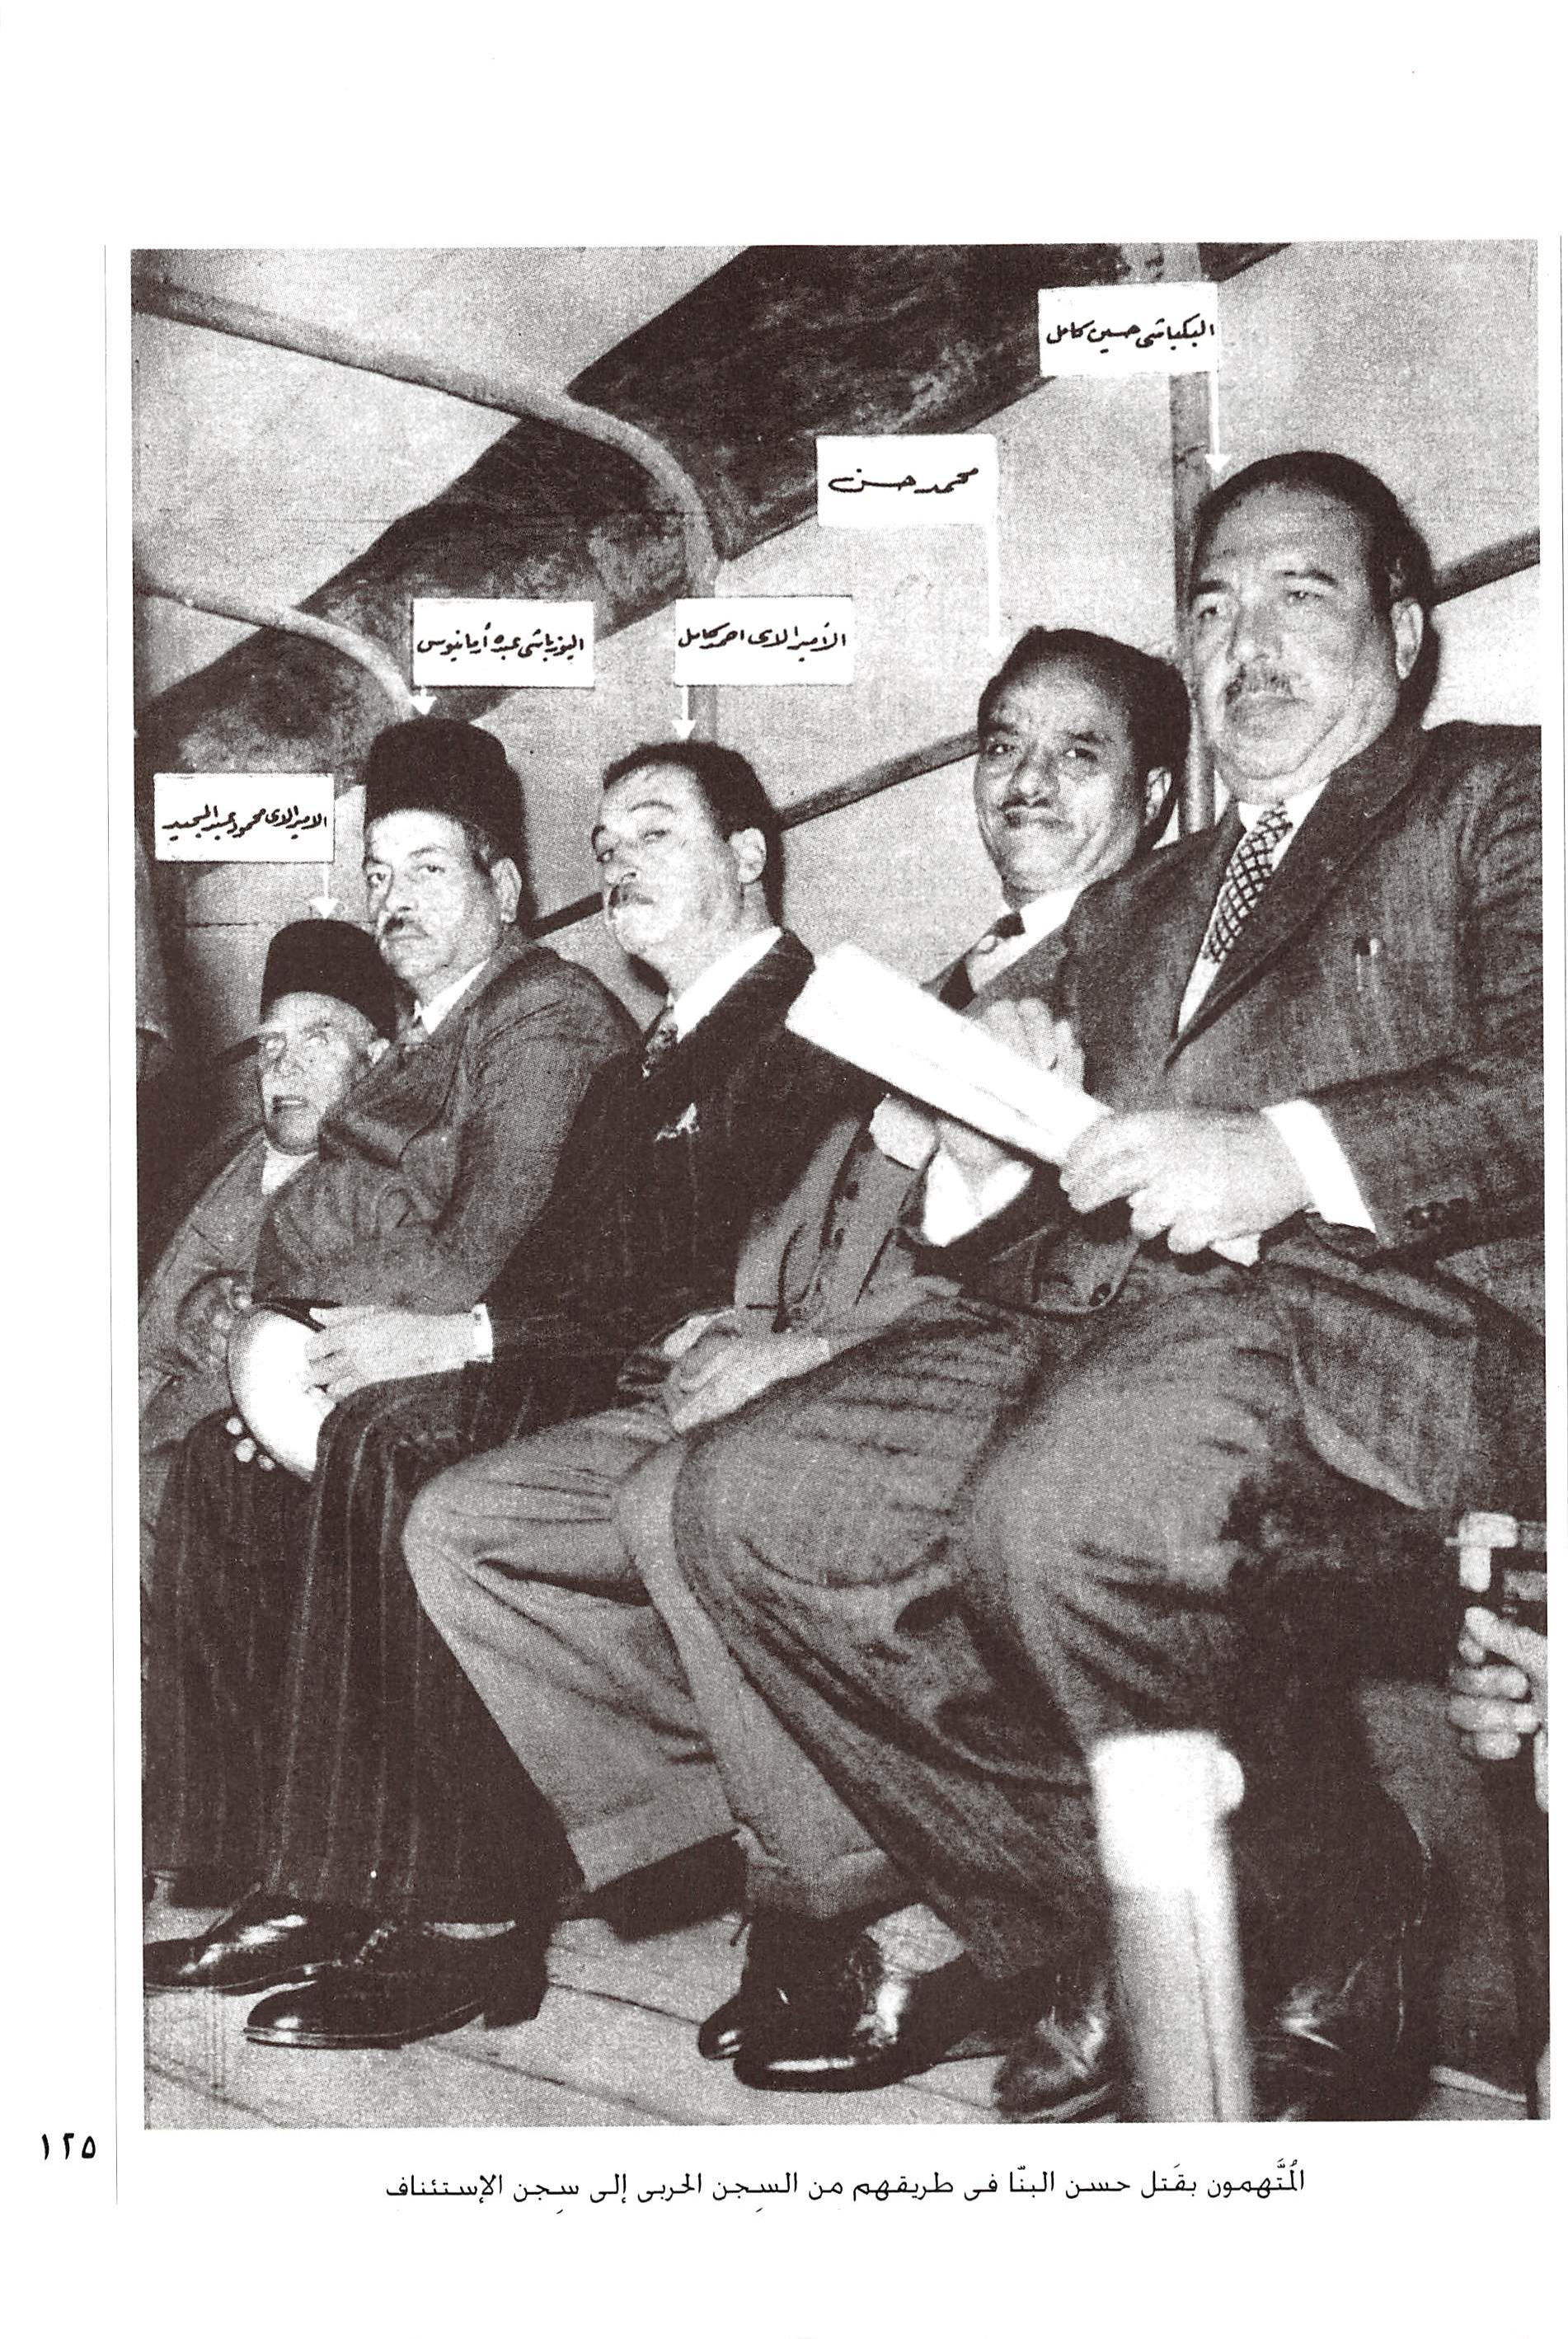 البكباشى حسين كامل
محمد حسن
الأميرالاى احمد كامل
اليوزباشى عبده أرمانيوس
الاميرالاى محمود عبد المجيد
المُتَّهمون بقَتل حسن البنّا فى طريقهم مِن السِجن الحربى إلى سِجن الإستئناف
١٢٥